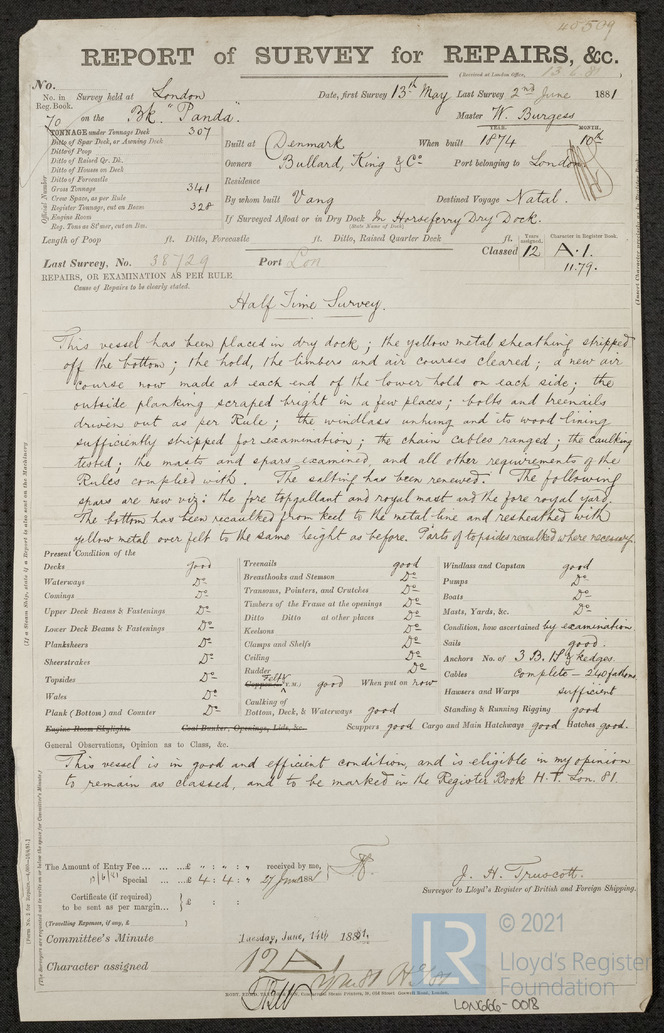 45509
REPORT of SURVEY for REPAIRS, &c.
(Received at London Office, 13.6.81)
No.
No. in Reg. Book. Survey held at London Date, first Survey 13th May Last Survey 2nd June 1881
70 on the Bk. "Panda". Master W. Burgess
TONNAGE under Tonnage Deck 307
Ditto of Spar Deck, or Awning Deck
Ditto of Poop
Ditto of Raised Qr. Dk.
Ditto of Houses on Deck
Ditto of Forecastle
Gross Tonnage 341
Crew Space, as per Rule
Register Tonnage, cut on Beam 328
Engine Room
Reg. Tons as St'mer, cut on Bm.
Official Number
YEAR. MONTH.
Built at Denmark When built 1874 10th
Owners Bullard, King & Co Port belonging to London
Residence
By whom built Vang Destined Voyage Natal.
If Surveyed Afloat or in Dry Dock In Horseferry Dry Dock.
(State Name of Dock)
Length of Poop ft. Ditto, Forecastle ft. Ditto, Raised Quarter Deck ft.
Classed Years assigned. 12 Character in Register Book. A.1.
11.79.
Last Survey, No. 38729 Port Lon
REPAIRS, OR EXAMINATION AS PER RULE
Cause of Repairs to be clearly stated.
Half Time Survey.
This vessel has been placed in dry dock; the yellow metal sheathing stripped
off the bottom; the hold, the timbers and air courses cleared; a new air
course now made at each end of the lower hold on each side; the
outside planking scraped bright in a few places; bolts and treenails
driven out as per Rule; the windlass unhung and its wood lining
sufficiently stripped for examination; the chain cables ranged; the caulking
tested; the masts and spars examined, and all other requirements of the
Rules complied with. The salting has been renewed. The following
spars are new viz: the fore topgallant and royal mast and the fore royal yard.
The bottom has been recaulked from keel to the metal line and resheathed with
yellow metal over felt to the same height as before. Parts of topsides recaulked where necessary.
Present Condition of the
Decks good
Waterways Do
Comings Do
Upper Deck Beams & Fastenings Do
Lower Deck Beams & Fastenings Do
Planksheers Do
Sheerstrakes Do
Topsides Do
Wales Do
Plank (Bottom) and Counter Do
Engine Room Skylights Coal Bunker, Openings, Lids, &c.
Treenails good
Breasthooks and Stemson Do
Transoms, Pointers, and Crutches Do
Timbers of the Frame at the openings Do
Ditto Ditto at other places Do
Keelsons Do
Clamps and Shelfs Do
Ceiling Do
Rudder Do
Felt & Y.M. good When put on now
Caulking of
Bottom, Deck, & Waterways good
Windlass and Capstan good
Pumps Do
Boats Do
Masts, Yards, &c. Do
Condition, how ascertained by examination
Sails good.
Anchors No. of 3 B. 1 S & kedges.
Cables complete - 240 fathoms.
Hawsers and Warps sufficient
Standing & Running Rigging good
Scuppers good Cargo and Main Hatchways good Hatches good.
General Observations, Opinion as to Class, &c.
This vessel is in good and efficient condition, and is eligible in my opinion
to remain as classed, and to be marked in the Register Book H.T. Lon. 81.
The Amount of Entry Fee ... £ " : " : " received by me,
Special ... £ 4 : 4 : " 27 June 1881
Certificate (if required) £ : :
to be sent as per margin...
(Travelling Expenses, if any, £ )
J. H. Truscott.
Surveyor to Lloyd's Register of British and Foreign Shipping.
Committee's Minute Tuesday, June, 14th 1881.
Character assigned 12 A 1
LR
© 2021
Lloyd's Register
Foundation
LON666-0018